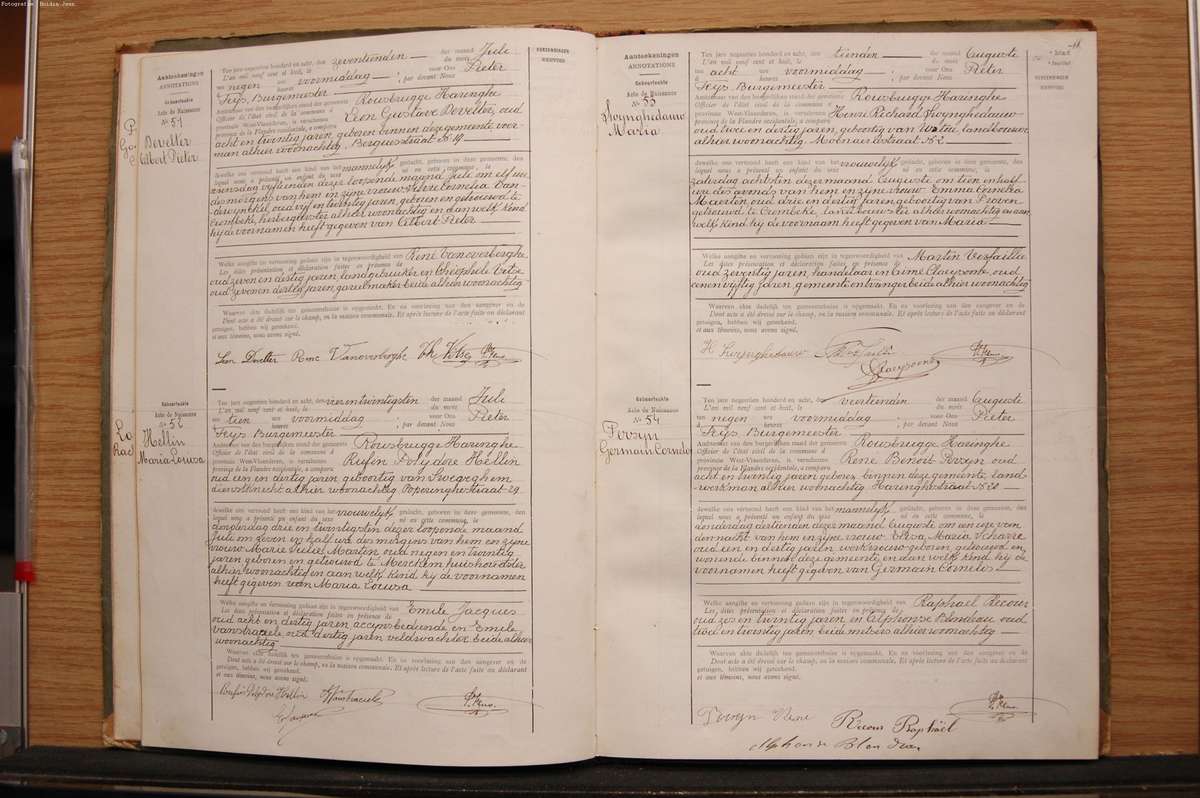 Fotografie: Huidig Jean
Aanteekeningen
ANNOTATIONS
Geboorteakte
Acte de Naissance
No 51
Develter
Albert Pieter
VERZENDINGEN
RENVOIS
Ten jare negentien honderd en acht, den zeventienden der maand Juli
L'an mil neuf cent et huit, le du mois
te negen ure voormiddag ; voor Ons Pieter
à heures ; par devant Nous
Feys, Burgemeester
Ambtenaar van den burgerlijken stand der gemeente Rousbrugge Haringhe
Officier de l'état civil de la commune d
provincie West-Vlaanderen, is verschenen Leon Gustave Develter, oud
province de la Flandre occidentale, a comparu
acht en twintig jaren, geboren binnen deze gemeente, voerman alhier woonachtig, Berguesstraat No 19
dewelke ons vertoond heeft een kind van het mannelijk geslacht, geboren in deze gemeente, den
lequel nous a présenté un enfant du sexe né en cette commune, le
woensdag vijftienden dezer loopende maand Juli om elf ure
des morgens van hem en zijne vrouw Silvie Cornelia Van-
derwynckel, oud vijf en twintig jaren, geboren en gehuwd te
Crombeke, herbergierster alhier woonachtig en aan welk kind
hij de voornamen heeft gegeven van Albert Pieter
Welke aangifte en vertooning gedaan zijn in tegenwoordigheid van René Vanoverberghe
Les dites présentation et déclaration faites en présence de
oud zeven en dertig jaren, landgebruiker en Theophile Vitse
oud zeven en dertig jaren, gareelmaker beide alhier woonachtig
Waarvan akte dadelijk ten gemeentehuize is opgemaakt. En na voorlezing aan den aangever en de
Dont acte a été dressé sur le champ, en la maison communale. Et après lecture de l'acte faite au déclarant
getuigen, hebben wij geteekend.
et aux témoins, nous avons signé.
Leon Develter Rene Vanoverberghe Th Vitse P. Feys
Geboorteakte
Acte de Naissance
No 52
Hellin
Maria Louisa
Ten jare negentien honderd en acht, den vierentwintigsten der maand Juli
L'an mil neuf cent et huit, le du mois
te tien ure voormiddag ; voor Ons Pieter
à heures ; par devant Nous
Feys Burgemeester
Ambtenaar van den burgerlijken stand der gemeente Rousbrugge Haringhe
Officier de l'état civil de la commune d
provincie West-Vlaanderen, is verschenen Rufin Polydore Hellin
province de la Flandre occidentale, a comparu
oud een en dertig jaren, geboortig van Sweveghem
dienstknecht alhier woonachtig Poperinghestraat 29
dewelke ons vertoond heeft een kind van het vrouwelijk geslacht, geboren in deze gemeente, den
lequel nous a présenté un enfant du sexe né en cette commune, le
donderdag drie en twintigsten dezer loopende maand
Juli om zeven en half ure des morgens van hem en zijne
vrouw Marie Julie Martin oud negen en twintig
jaren geboren en gehuwd te Merckem huishoudster
alhier woonachtig en aan welk kind hij de voornamen
heeft gegeven van Maria Louisa
Welke aangifte en vertooning gedaan zijn in tegenwoordigheid van Emile Jacques
Les dites présentation et déclaration faites en présence de
oud acht en dertig jaren accijnsbediende en Emile
Vanstraceele, oud dertig jaren veldwachter, beide alhier
woonachtig
Waarvan akte dadelijk ten gemeentehuize is opgemaakt. En na voorlezing aan den aangever en de
Dont acte a été dressé sur le champ, en la maison communale. Et après lecture de l'acte faite au déclarant
getuigen, hebben wij geteekend.
et aux témoins, nous avons signé.
Rufin Polydore Hellin Vanstraceele P. Feys
E. Jacques
Aanteekeningen
ANNOTATIONS
Geboorteakte
Acte de Naissance
No 53
Swynghedauw
Maria
VERZENDINGEN
RENVOIS
Ten jare negentien honderd en acht, den tienden der maand Auguste
L'an mil neuf cent et huit, le du mois
te acht ure voormiddag ; voor Ons Pieter
à heures ; par devant Nous
Feys Burgemeester
Ambtenaar van den burgerlijken stand der gemeente Rousbrugge Haringhe
Officier de l'état civil de la commune d
provincie West-Vlaanderen, is verschenen Henri Richard Swynghedauw
province de la Flandre occidentale, a comparu
oud twee en dertig jaren, geboortig van Watou, landbouwer
alhier woonachtig, Molenaerstraat No 2
dewelke ons vertoond heeft een kind van het vrouwelijk geslacht, geboren in deze gemeente, den
lequel nous a présenté un enfant du sexe né en cette commune, le
zaterdag achtsten dezer maand Auguste om tien en half
ure des avonds van hem en zijne vrouw Emma Cornelia
Maerten oud drie en dertig jaren geboortig van Proven
gehuwd te Crombeke, landbouwster alhier woonachtig en aan
welk kind hij de voornaam heeft gegeven van Maria
Welke aangifte en vertooning gedaan zijn in tegenwoordigheid van Martin Versaillie
Les dites présentation et déclaration faites en présence de
oud zeventig jaren, handelaar en Aimé Claeysoone, oud
eenen vijftig jaren, gemeente ontvanger beide alhier woonachtig
Waarvan akte dadelijk ten gemeentehuize is opgemaakt. En na voorlezing aan den aangever en de
Dont acte a été dressé sur le champ, en la maison communale. Et après lecture de l'acte faite au déclarant
getuigen, hebben wij geteekend.
et aux témoins, nous avons signé.
H Swynghedauw P. Feys
Claeysoone
Geboorteakte
Acte de Naissance
No 54
Persyn
Germain Cornelis
Ten jare negentien honderd en acht, den veertienden der maand Auguste
L'an mil neuf cent et huit, le du mois
te negen ure voormiddag ; voor Ons Pieter
à heures ; par devant Nous
Feys Burgemeester
Ambtenaar van den burgerlijken stand der gemeente Rousbrugge Haringhe
Officier de l'état civil de la commune d
provincie West-Vlaanderen, is verschenen René Benoit Persyn oud
province de la Flandre occidentale, a comparu
acht en twintig jaren geboren binnen deze gemeente, land-
werkman alhier woonachtig Haringhestraat No 28
dewelke ons vertoond heeft een kind van het mannelijk geslacht, geboren in deze gemeente, den
lequel nous a présenté un enfant du sexe né en cette commune, le
donderdag dertienden dezer maand Auguste om een ure van
den nacht van hem en zijne vrouw Elisa Maria Scharre
oud een en dertig jaren werkvrouw geboren gehuwd en
wonende binnen deze gemeente en aan welk kind hij de
voornamen heeft gegeven van Germain Cornelis
Welke aangifte en vertooning gedaan zijn in tegenwoordigheid van Raphaël Recour
Les dites présentation et déclaration faites en présence de
oud zes en twintig jaren en Alphonse Blondeau oud
twee en twintig jaren beide metsers alhier woonachtig
Waarvan akte dadelijk ten gemeentehuize is opgemaakt. En na voorlezing aan den aangever en de
Dont acte a été dressé sur le champ, en la maison communale. Et après lecture de l'acte faite au déclarant
getuigen, hebben wij geteekend.
et aux témoins, nous avons signé.
Persyn Rene Recour Raphaël P. Feys
Alphonse Blondeau